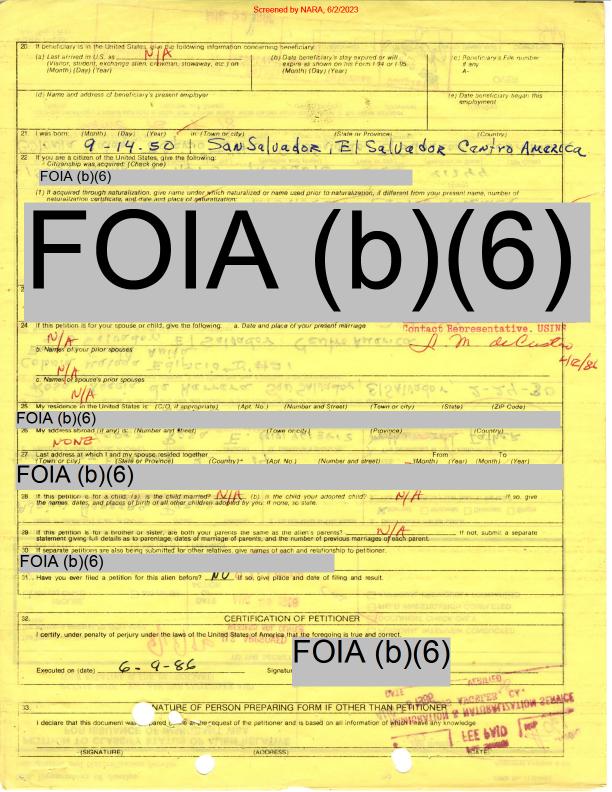 Screened by NARA, 6/2/2023
20. If beneficiary is in the United States, give the following information concerning beneficiary:
(a) Last arrived in U.S. as N/A (b) Date beneficiary's stay expired or will (c) Beneficiary's File number
(Visitor, student, exchange alien, crewman, stowaway, etc.) on expire as shown on his Form I-94 or I-95 if any
(Month) (Day) (Year) (Month) (Day) (Year) A-
(d) Name and address of beneficiary's present employer (e) Date beneficiary began this
employment
21. I was born: (Month) (Day) (Year) in (Town or city) (State or Province) (Country)
9-14-50 San Salvador, El Salvador Centro America
22. If you are a citizen of the United States, give the following:
Citizenship was acquired: (Check one)
FOIA (b)(6)
(1) If acquired through naturalization, give name under which naturalized or name used prior to naturalization, if different from your present name, number of
naturalization certificate, and date and place of naturalization:
FOIA (b)(6)
24. If this petition is for your spouse or child, give the following: a. Date and place of your present marriage
N/A
Contact Representative, USINS
b. Names of your prior spouses
N/A
4/2/86
c. Names of spouse's prior spouses
N/A
25. My residence in the United States is: (C/O, if appropriate) (Apt. No.) (Number and Street) (Town or city) (State) (ZIP Code)
FOIA (b)(6)
26. My address abroad (if any) is: (Number and Street) (Town or city) (Province) (Country)
NONE
27. Last address at which I and my spouse resided together From To
(Town or city) (State or Province) (Country) (Apt. No.) (Number and street) (Month) (Year) (Month) (Year)
FOIA (b)(6)
28. If this petition is for a child, (a) is the child married? N/A (b) is the child your adopted child? N/A If so, give
the names, dates, and places of birth of all other children adopted by you. If none, so state.
29. If this petition is for a brother or sister, are both your parents the same as the alien's parents? N/A If not, submit a separate
statement giving full details as to parentage, dates of marriage of parents, and the number of previous marriages of each parent.
30. If separate petitions are also being submitted for other relatives, give names of each and relationship to petitioner.
FOIA (b)(6)
31. Have you ever filed a petition for this alien before? NO If so, give place and date of filing and result.
32. CERTIFICATION OF PETITIONER
I certify, under penalty of perjury under the laws of the United States of America that the foregoing is true and correct.
Executed on (date) 6-9-86 Signature FOIA (b)(6)
33. SIGNATURE OF PERSON PREPARING FORM IF OTHER THAN PETITIONER
I declare that this document was prepared by me at the request of the petitioner and is based on all information of which I have any knowledge
(SIGNATURE) (ADDRESS) (DATE)
IMMIGRATION & NATURALIZATION SERVICE
FEE PAID